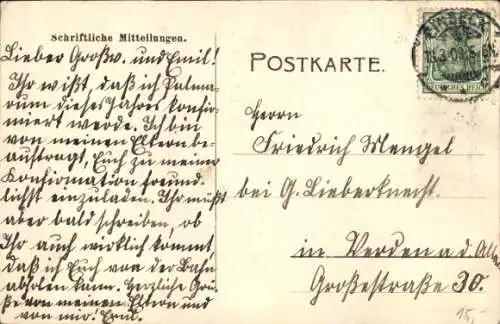 Schriftliche Mitteilungen.
Lieber Großv. und Emil!
Ihr wißt, daß ich Palma-
rum dieses Jahres konfir-
miert werde. Ich bin
von meinen Eltern be-
auftragt, Euch zu meiner
Konfirmation freund-
lichst einzuladen. Ihr müßt
aber bald schreiben, ob
Ihr auch wirklich kommt,
daß ich Euch von der Bahn
abholen kann. Herzliche Grü-
ße von meinen Eltern und
von mir! Emil.
POSTKARTE.
Herrn
Friedrich Mengel
bei G. Lieberknecht.
in Verden a. d. Aller
Großestraße 30.
DEUTSCHES REICH
15,-